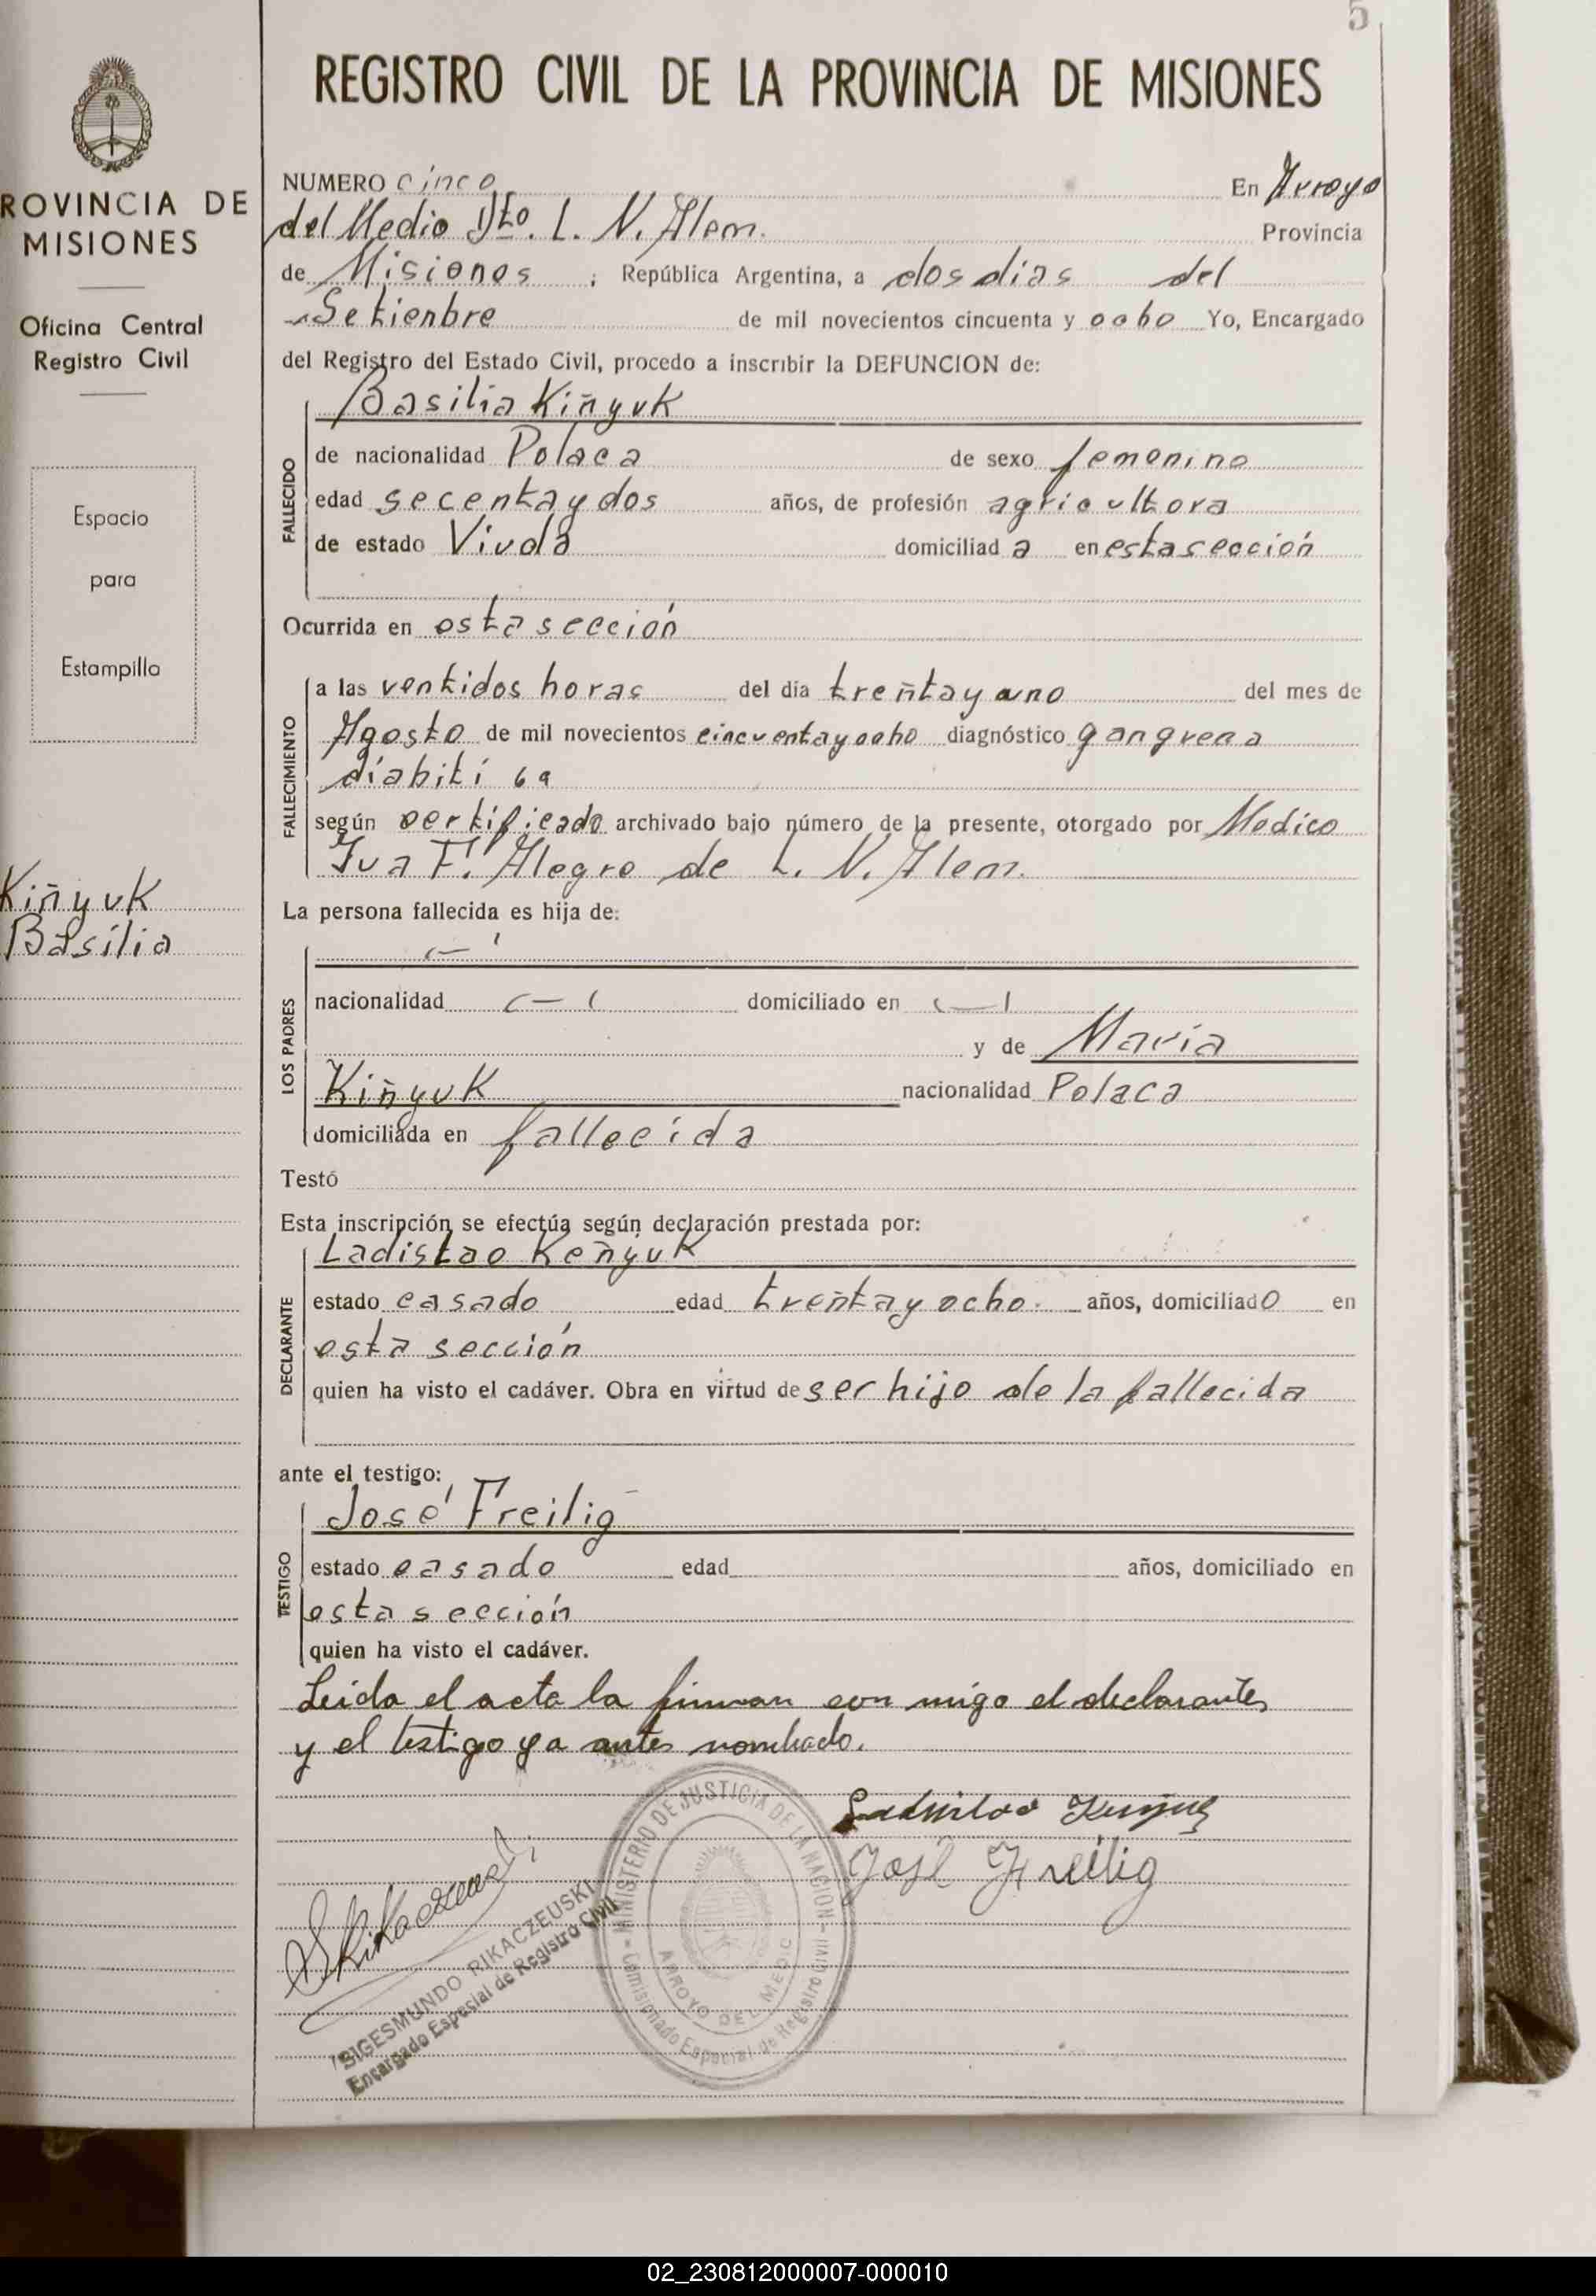 5
REGISTRO CIVIL DE LA PROVINCIA DE MISIONES
ROVINCIA DE
MISIONES
Oficina Central
Registro Civil
Espacio
para
Estampilla
Kiñyuk
Basilia
NUMERO cinco En Arroyo
del Medio Dto. L. N. Alem. Provincia
de Misiones ; República Argentina, a dos dias del
Setienbre de mil novecientos cincuenta y ocho Yo, Encargado
del Registro del Estado Civil, procedo a inscribir la DEFUNCION de:
Basilia Kiñyuk
FALLECIDO
de nacionalidad Polaca de sexo femenino
edad secentaydos años, de profesión agricultora
de estado Viuda domiciliad a en esta sección
Ocurrida en esta sección
FALLECIMIENTO
a las ventidos horas del día treñtayuno del mes de
Agosto de mil novecientos cincuentayocho diagnóstico gangrena
diabiti
según certificado archivado bajo número de la presente, otorgado por Medico
Jua F. Alegre de L. N. Alem.
La persona fallecida es hija de:
LOS PADRES
nacionalidad domiciliado en
y de Maria
Kiñyuk nacionalidad Polaca
domiciliada en fallecida
Testó
Esta inscripción se efectúa según declaración prestada por:
Ladistao Keñyuk
DECLARANTE
estado casado edad treñtayocho. años, domiciliado en
esta sección
quien ha visto el cadáver. Obra en virtud de ser hijo de la fallecida
ante el testigo:
José Freilig
TESTIGO
estado casado edad años, domiciliado en
esta sección
quien ha visto el cadáver.
Leida el acta la firman con migo el declarante,
y el testigo ya antes nombrado.
José Freilig
SIGESMUNDO RIKACZEUSKI
Encargado Espesial de Registro Civil
MINISTERIO DE JUSTICIA DE LA NACION
Comisionado Especial de Registro Civil
ARROYO DEL MEDIO
02_230812000007-000010